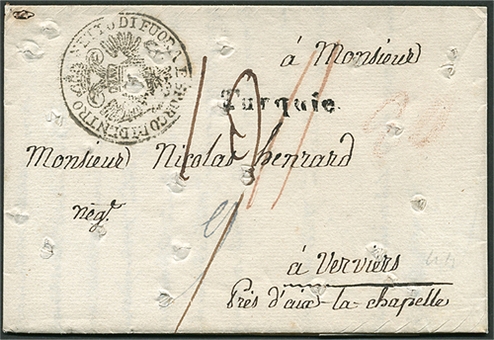 NETTO DI FUORA E SPORCO DI DENTRO
à Monsieur
Turquie.
Monsieur Nicolas henrard
negt.
à Verviers
Près d'aix-la-chapelle